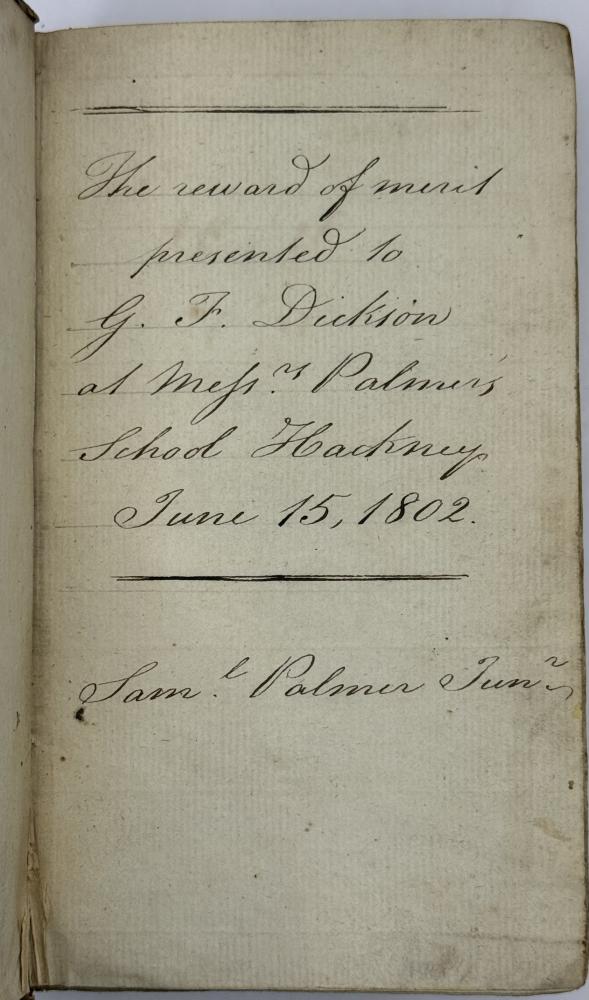 The reward of merit
presented to
G. F. Dickson
at Meſsrs Palmer's
School Hackney
June 15, 1802.
Saml Palmer Junr